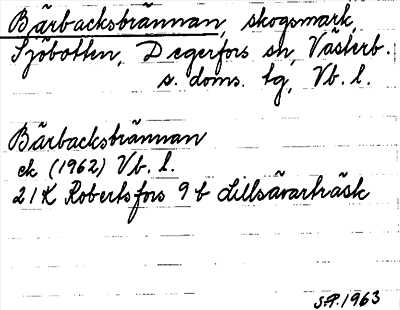 Bärbacksbrännan, skogsmark,
Sjöbotten, Degerfors sn, Västerb.
s. doms. lg, Vb. l.
Bärbacksbrännan
ek (1962) Vb. l.
21K Robertsfors 9 b Lillsävarträsk
S.P. 1963